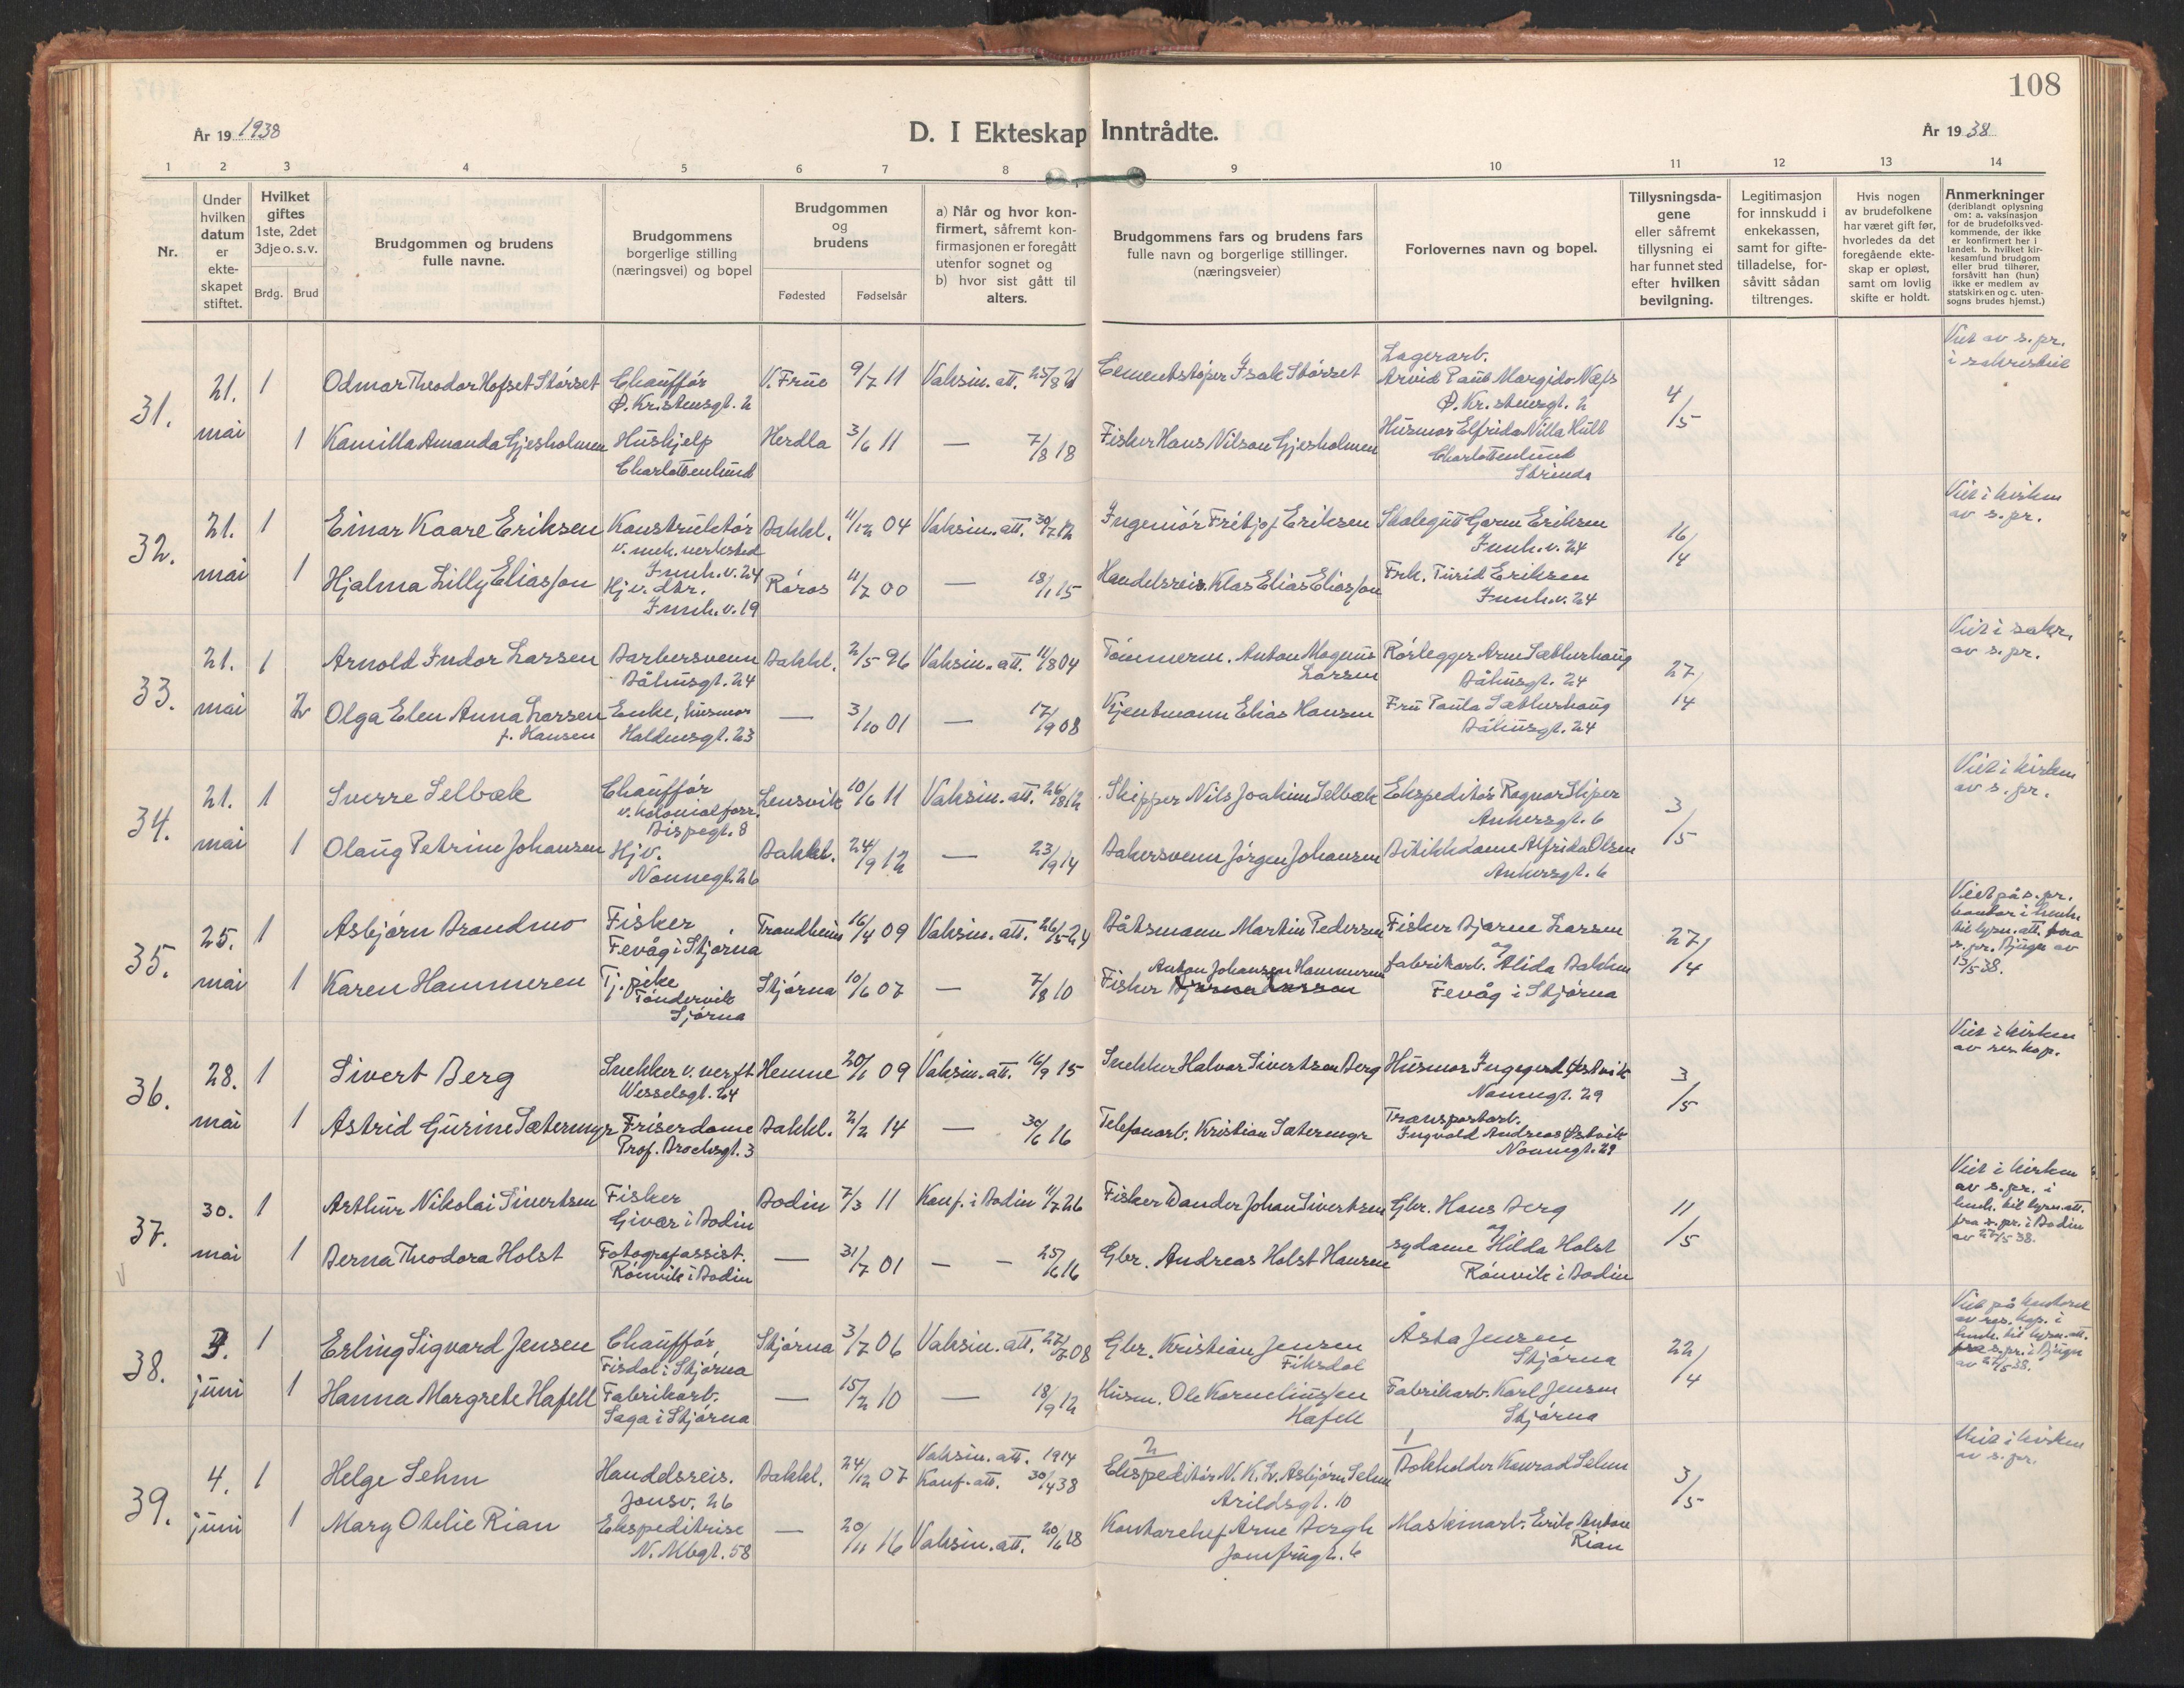 108
År 19 1938
D. I Ekteskap Inntrådte.
År 19 38
1 2 3 4 5 6 7 8 9 10 11 12 13 14
Nr.
Under hvilken datum er ekteskapet stiftet.
Hvilket giftes 1ste, 2det 3dje o. s. v.
Brdg. Brud
Brudgommen og brudens fulle navne.
Brudgommens borgerlige stilling (næringsvei) og bopel
Brudgommen og brudens
Fødested Fødselsår
a) Når og hvor konfirmert, såfremt konfirmasjonen er foregått utenfor sognet og
b) hvor sist gått til alters.
Brudgommens fars og brudens fars fulle navn og borgerlige stillinger. (næringsveier)
Forlovernes navn og bopel.
Tillysningsdagene eller såfremt tillysning ei har funnet sted efter hvilken bevilgning.
Legitimasjon for innskudd i enkekassen, samt for giftetilladelse, forsåvitt sådan tiltrenges.
Hvis nogen av brudefolkene har været gift før, hvorledes da det foregående ekteskap er opløst, samt om lovlig skifte er holdt.
Anmerkninger (deriblandt oplysning om: a. vaksinasjon for de brudefolks vedkommende, der ikke er konfirmert her i landet. b. hvilket kirkesamfund brudgom eller brud tilhører, forsåvitt han (hun) ikke er medlem av statskirken og c. utensogns brudes hjemst.)
31.
21. mai
1 Odmar Theodor Hofset Störset
Chaufför
Ö. Kristensgt. 2
V. Frue 9/7 11 Vaksin. att. 25/8 21
Cementstöper Isak Störset
Lagerarb.
Arvid Paul Margido Næss
Ö. Kr.stensgt. 2
4/5
Viet av s. pr.
i sakristiet
1 Kamilla Amanda Gjesholmen
Hushjelp
Charlottenlund
Herdla 3/6 11 — 7/8 18
Fisker Hans Nilson Gjesholmen
Husmor Elfrida Villa Hult
Charlottenlund
Strinda
32.
21. mai
1 Einar Kaare Eriksen
Konstruktör
v. mek. verksted
Innh. v. 24
Bakkl. 11/12 04 Vaksin. att. 30/7 12
Ingeniör Fritjof Eriksen
Skolegutt Gorm Eriksen
Innh. v. 24
16/4
Viet i kirken
av s. pr.
1 Hjalma Lilly Eliasson
Hj v. dbr.
Innh. v. 19
Röros 11/7 00 — 18/1 15
Handelsreis. Klas Elias Eliasson
Frk. Turid Eriksen
Innh. v. 24
33.
21. mai
1 Arnold Indor Larsen
Barbersvenn
Båhusgt. 24
Bakkl. 2/5 96 Vaksin. att. 11/8 04
Tömmerm. Anton Magnus
Larsen
Rörlegger Arne Sætherhaug
Båhusgt. 24
27/4
Viet i sakr.
av s. pr.
2 Olga Elen Anna Larsen
f. Hansen
Enke, husmor
Haldensgt. 23
— 3/10 01 — 17/9 08
Kjentmann Elias Hansen
Fru Paula Sætherhaug
Båhusgt. 24
34.
21. mai
1 Sverre Selbæk
Chaufför
v. kolonialforr.
Bispegt. 8
Lensvik 10/6 11 Vaksin. att. 26/8 12
Skipper Nils Joakim Selbæk
Ekspeditör Ragnar Skjer
Ankersgt. 6
3/5
Viet i kirken
av s. pr.
1 Olaug Petrine Johansen
Hjv.
Nonnegt. 26
Bakkl. 24/9 12 — 23/9 14
Bakersvenn Jörgen Johansen
Butikkdame Alfrida Olsen
Ankersgt. 6
35.
25. mai
1 Asbjörn Brandmo
Fisker
Fevåg i Stjörna
Trondheim 16/4 09 Vaksin. att. 26/5 24
Båtsmann Martin Pedersen
Fisker Bjarne Larsen
og
27/4
Viet på s. pr.
kontor i henh.
til lysn. att. fra
s. pr. Bjugn av
13/5 38.
1 Karen Hammeren
Tj. pike
Töndervik
Stjörna
Stjörna 10/6 07 — 7/8 10
Anton Johansen Hammeren
Fisker Bjarne Larsen
fabrikarb. Alida Bakken
Fevåg i Stjörna
36.
28. mai
1 Sivert Berg
Snekker v. verft
Wesselsgt. 24
Hemne 20/1 09 Vaksin. att. 16/9 15
Snekker Halvor Sivertsen Berg
Husmor Ingegerd Östvik
Nonnegt. 29
3/5
Viet i kirken
av res. kap.
1 Astrid Gurine Sætermyr
Friserdame
Prof. Brochsgt. 3
Bakkl. 2/2 14 — 30/6 16
Telefonarb. Kristian Sætermyr
Transportarb.
Ingvald Andreas Östvik
Nonnegt. 29
37.
30. mai
1 Arthur Nikolai Sivertsen
Fisker
Givær i Bodin
Bodin 7/3 11 Konf. i Bodin 11/7 26
Fisker Wander Johan Sivertsen
Gbr. Hans Berg
og
11/5
Viet i kirken
av s. pr. i
henh. til lysn. att.
fra s. pr. i Bodin
av 27/5 38.
1 Berna Theodora Holst
Fotografassist.
Rönvik i Bodin
— 31/7 01 — — 25/6 16
Gbr. Andreas Holst Hansen
sydame Hilda Holst
Rönvik i Bodin
38.
3. juni
1 Erling Sigvard Jensen
Chaufför
Fisdal i Stjörna
Stjörna 3/7 06 Vaksin. att. 27/7 08
Gbr. Kristian Jensen
Fiksdal
Åsta Jensen
Stjörna
22/4
Viet på kontoret
av res. kap. i
henh. til lysn. att.
fra s. pr. i Bjugn
av 27/5 38.
1 Hanna Margrete Hafell
Fabrikarb.
Saga i Stjörna
— 15/2 10 — 18/9 12
Husm. Ole Korneliussen
Hafell
Fabrikarb. Karl Jensen
Stjörna
39.
4. juni
1 Helge Sehm
Handelsreis.
Jonsv. 26
Bakkl. 24/12 07
Vaksin. att. 1914
Konf. att. 30/4 38
2
Ekspeditör N. K. L. Asbjörn Sehm
Arildsgt. 10
1
Bokholder Konrad Sehm
3/5
Viet i kirken
av s. pr.
1 Mary Otelie Rian
Ekspeditrise
N. Mbgt. 58
— 20/11 16 Vaksin. att. 20/6 18
Kontorchef Arne Bergh
Jomfrugt. 6
Maskinarb. Erik Anton
Rian